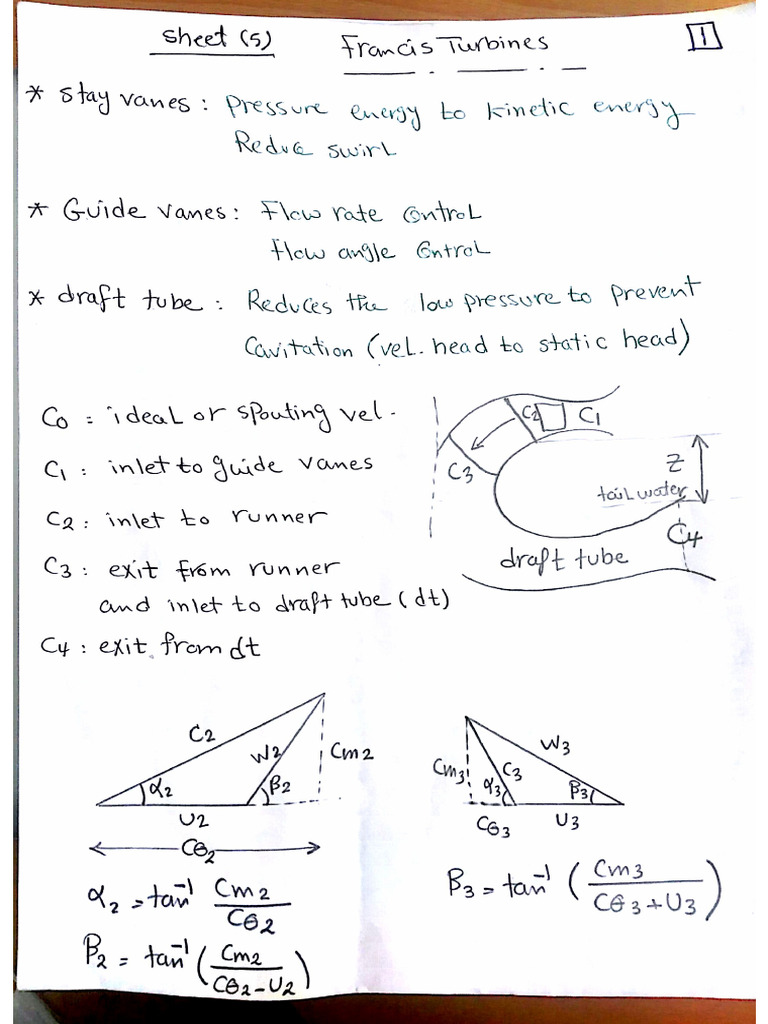 Sheet (5) Francis Turbines 1
* Stay vanes : Pressure energy to kinetic energy
Reduce swirl
* Guide vanes : Flow rate control
flow angle control
* draft tube : Reduces the low pressure to prevent
Cavitation (vel. head to static head)
C0 : ideal or spouting vel.
C1 : inlet to guide vanes
C2 : inlet to runner
C3 : exit from runner
and inlet to draft tube (dt)
C4 : exit from dt
C2 C1
C3
Z
tail water
C4
draft tube
C2 W2 Cm2
α2 β2
U2
Cθ2
α2 = tan⁻¹ Cm2/Cθ2
β2 = tan⁻¹ (Cm2/(Cθ2-U2))
W3
Cm3 C3
α3 β3
Cθ3 U3
β3 = tan⁻¹ (Cm3/(Cθ3+U3))